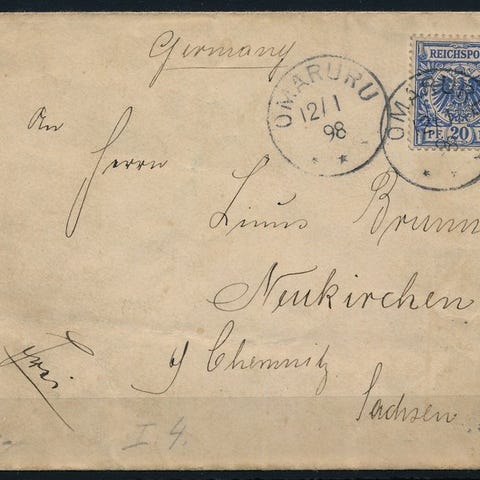 Germany
REICHSPO
OMARURU
12/1
98
OMA
98
PF. 20
An
Herrn
Linus Brunn
Neukirchen
Chemnitz
Sachsen
frei
I. 4.